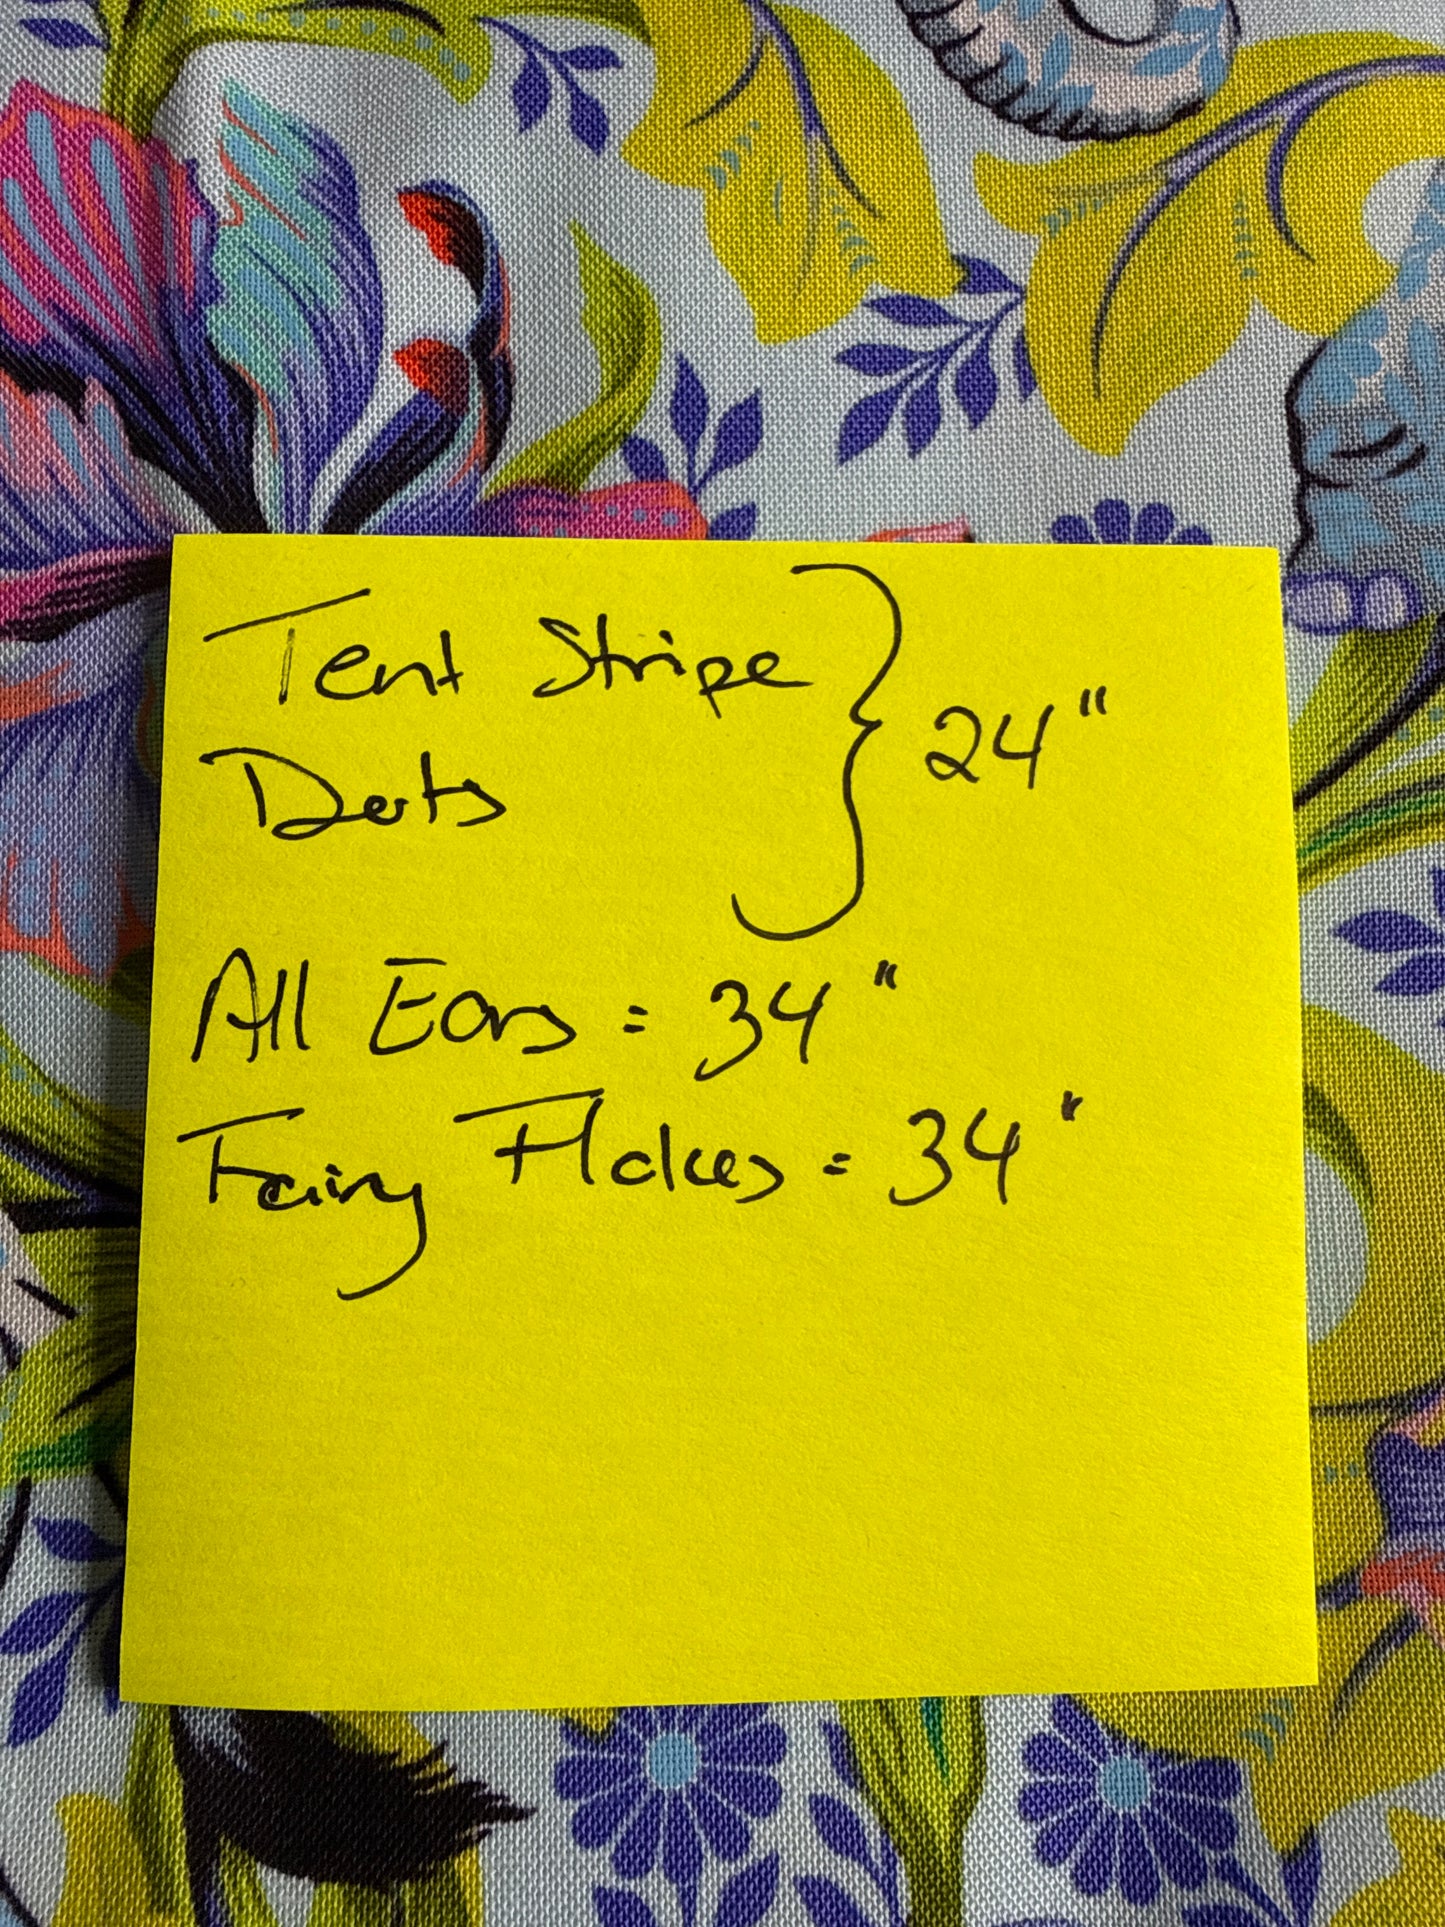 Tent Stripe } 24"
Dots
All Ears = 34"
Fairy Flakes = 34"